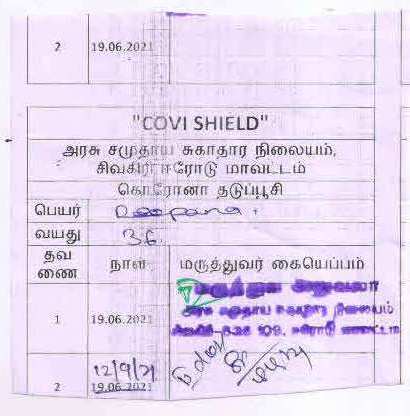 2 19.06.2021
"COVI SHIELD"
அரசு சமுதாய சுகாதார நிலையம்,
சிவகிரி ஈரோடு மாவட்டம்
கொரோனா தடுப்பூசி
பெயர் Deepana.
வயது 36
தவணை நாள் மருத்துவர் கையெப்பம்
மருத்துவ அலுவலர்
அரசு சமுதாய சுகாதார நிலையம்
1 19.06.2021 சிவகிரி-638 109, ஈரோடு மாவட்டம்
12/9/21
2 19.06.2021